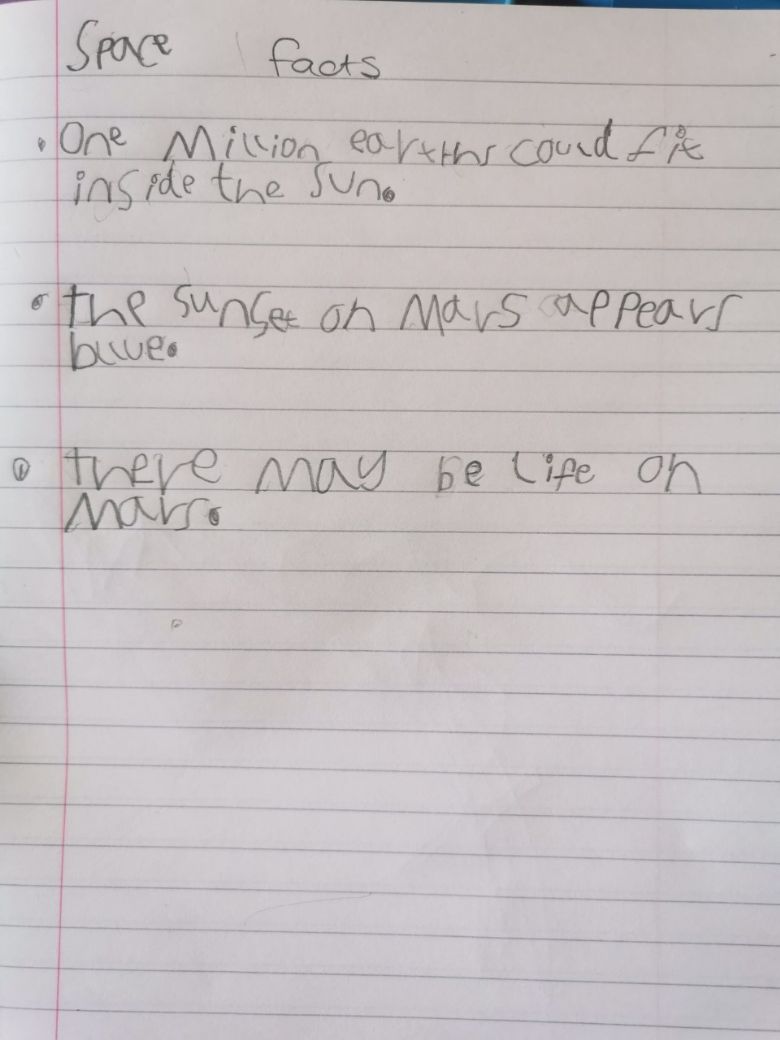 Space facts
• One Million earths could fit
inside the sun.
• the sunset on Mars appears
blue.
• there may be life on
Mars.